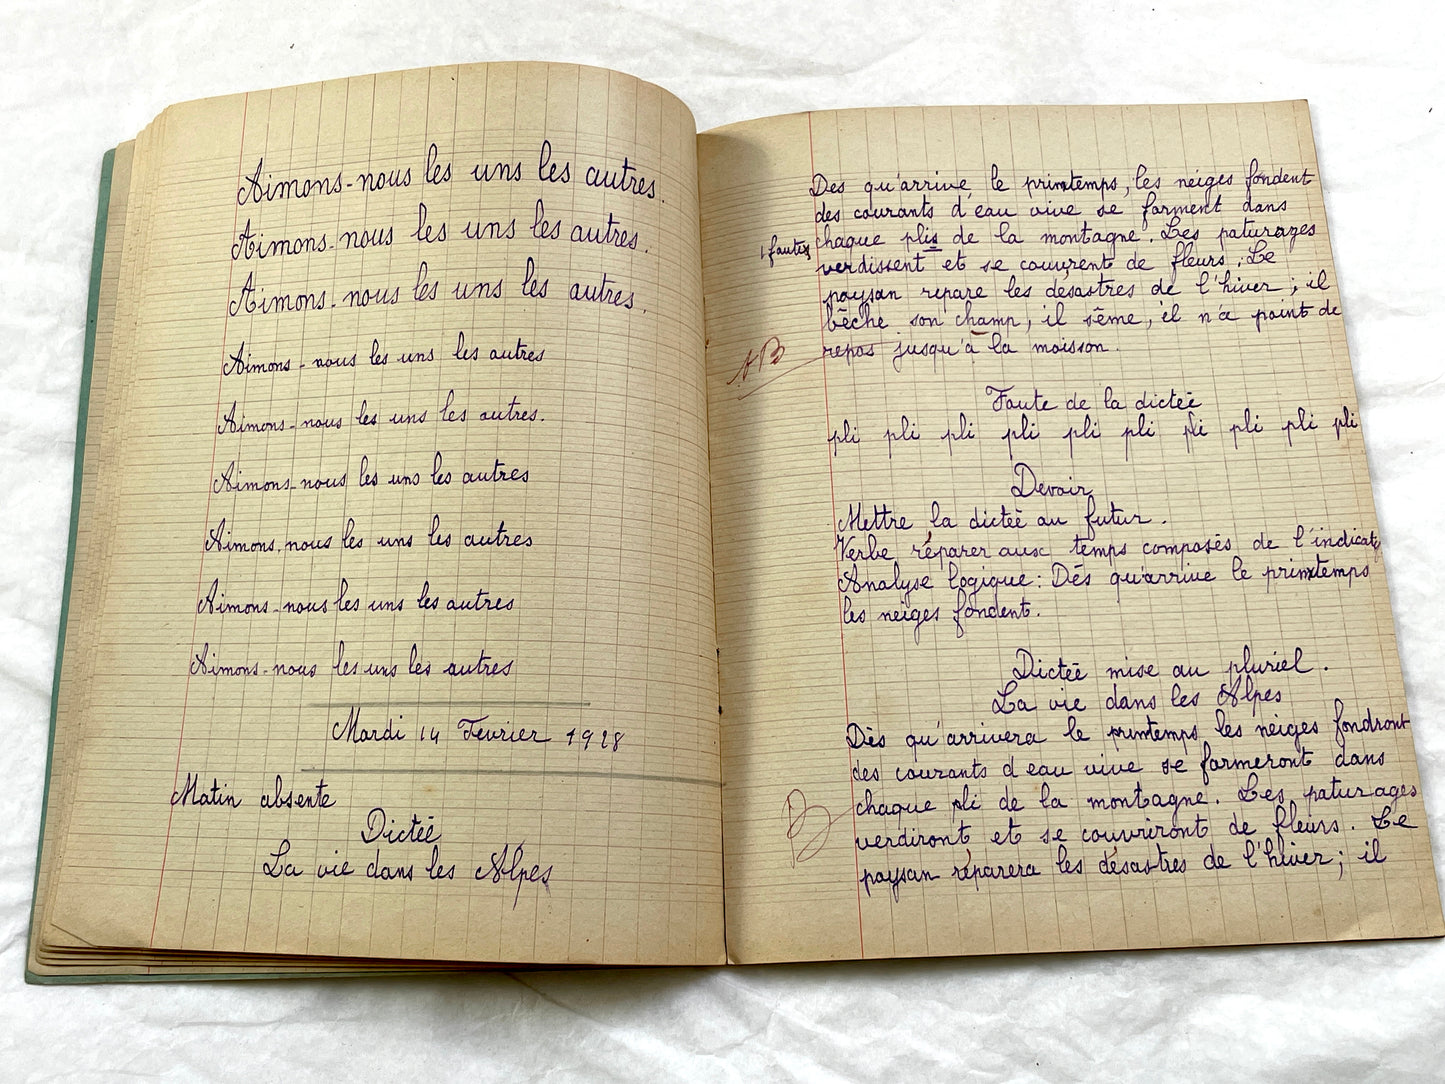 Aimons-nous les uns les autres.
Aimons-nous les uns les autres.
Aimons-nous les uns les autres.
Aimons-nous les uns les autres
Aimons-nous les uns les autres.
Aimons-nous les uns les autres
Aimons-nous les uns les autres
Aimons-nous les uns les autres
Aimons-nous les uns les autres
Mardi 14 Février 1928
Matin absente
Dictée
La vie dans les Alpes
Dès qu'arrive le printemps, les neiges fondent
des courants d'eau vive se forment dans
chaque plis de la montagne. Les paturages
1 fautes
verdissent et se couvrent de fleurs. Le
paysan répare les désastres de l'hiver ; il
bêche son champ, il sème, il n'a point de
repos jusqu'à la moisson.
AB
Faute de la dictée
pli pli pli pli pli pli pli pli pli pli
Devoir
Mettre la dictée au futur.
Verbe réparer aux temps composés de l'indicatif
Analyse logique : Dès qu'arrive le printemps
les neiges fondent.
Dictée mise au pluriel.
La vie dans les Alpes
Dès qu'arrivera le printemps les neiges fondront
des courants d'eau vive se formeront dans
chaque pli de la montagne. Les paturages
B
verdiront et se couvriront de fleurs. Le
paysan réparera les désastres de l'hiver ; il